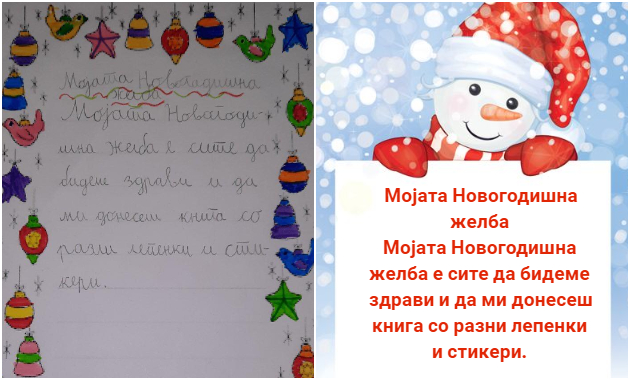 Мојата Новогодишна
желба
Мојата Новогоди-
шна желба е сите да
бидеме здрави и да
ми донесеш книга со
разни лепенки и сти-
кери.
Мојата Новогодишна
желба
Мојата Новогодишна
желба е сите да бидеме
здрави и да ми донесеш
книга со разни лепенки
и стикери.